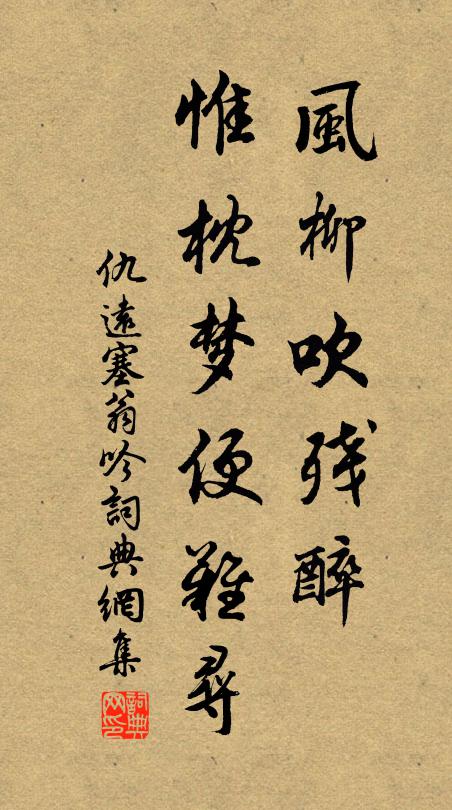 風柳吹残醉
惟枕梦便難尋
仇遠塞翁吟詞典網集
詞典網印